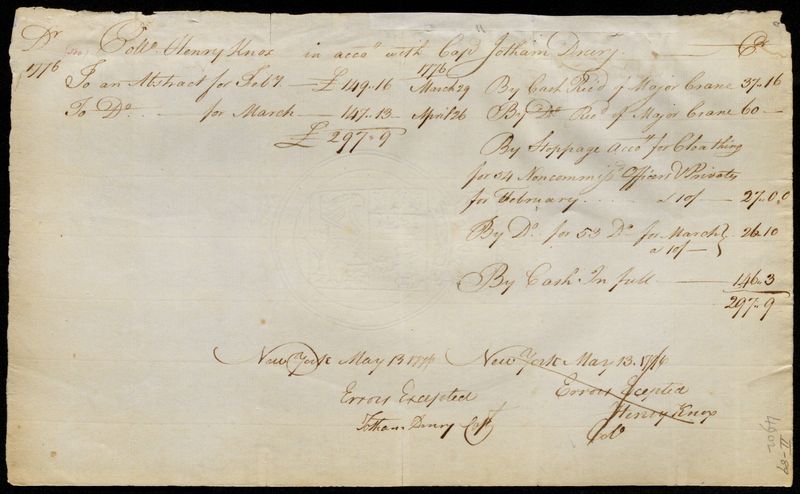 Dr Collo. Henry Knox in acco.t with Capt Jotham Drury. Cr
1776 1776
To an Abstract for Feby. £ 149..16 March 29 By Cash Rec'd of Major Crane 37..16
To Do. for March 147..13 April 26 By Do. Rec'd of Major Crane 60
£ 297..9
By Stoppage Acco.t for Cloathing
for 54 Noncommiss'd Officers & Privates
for February a 10/ 27..0..0
By Do. for 53 Do for March } 26..10
a 10/
By Cash In full 146..3
297..9
New York May 13 1776 New York May 13. 1776
Errors Excepted Errors Ecepted
Jotham Drury Capt Henry Knox
Colo
4902
II-87